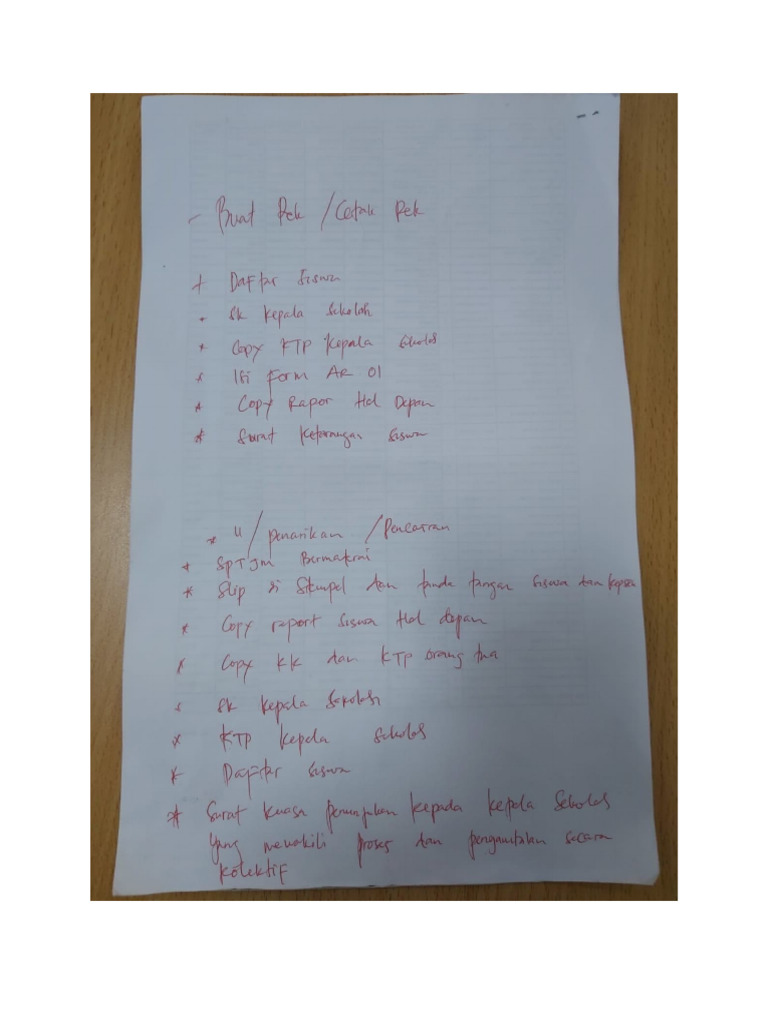 - Buat Rek / Cetak Rek
+ Daftar Siswa
- SK Kepala Sekolah
* Copy KTP Kepala Sekolah
* Isi Form AR 01
* Copy Rapor Hal Depan
* Surat Keterangan Siswa
* u/ penarikan / Pencairan
* SPTJM Bermaterai
* Slip di Stempel dan tanda tangan siswa dan kepsek
* Copy raport siswa Hal depan
* Copy KK dan KTP orang tua
* SK Kepala Sekolah
* KTP Kepala Sekolah
* Daftar siswa
* Surat Kuasa penunjukan kepada kepala Sekolah
yang mewakili proses dan pengambilan secara
kolektif